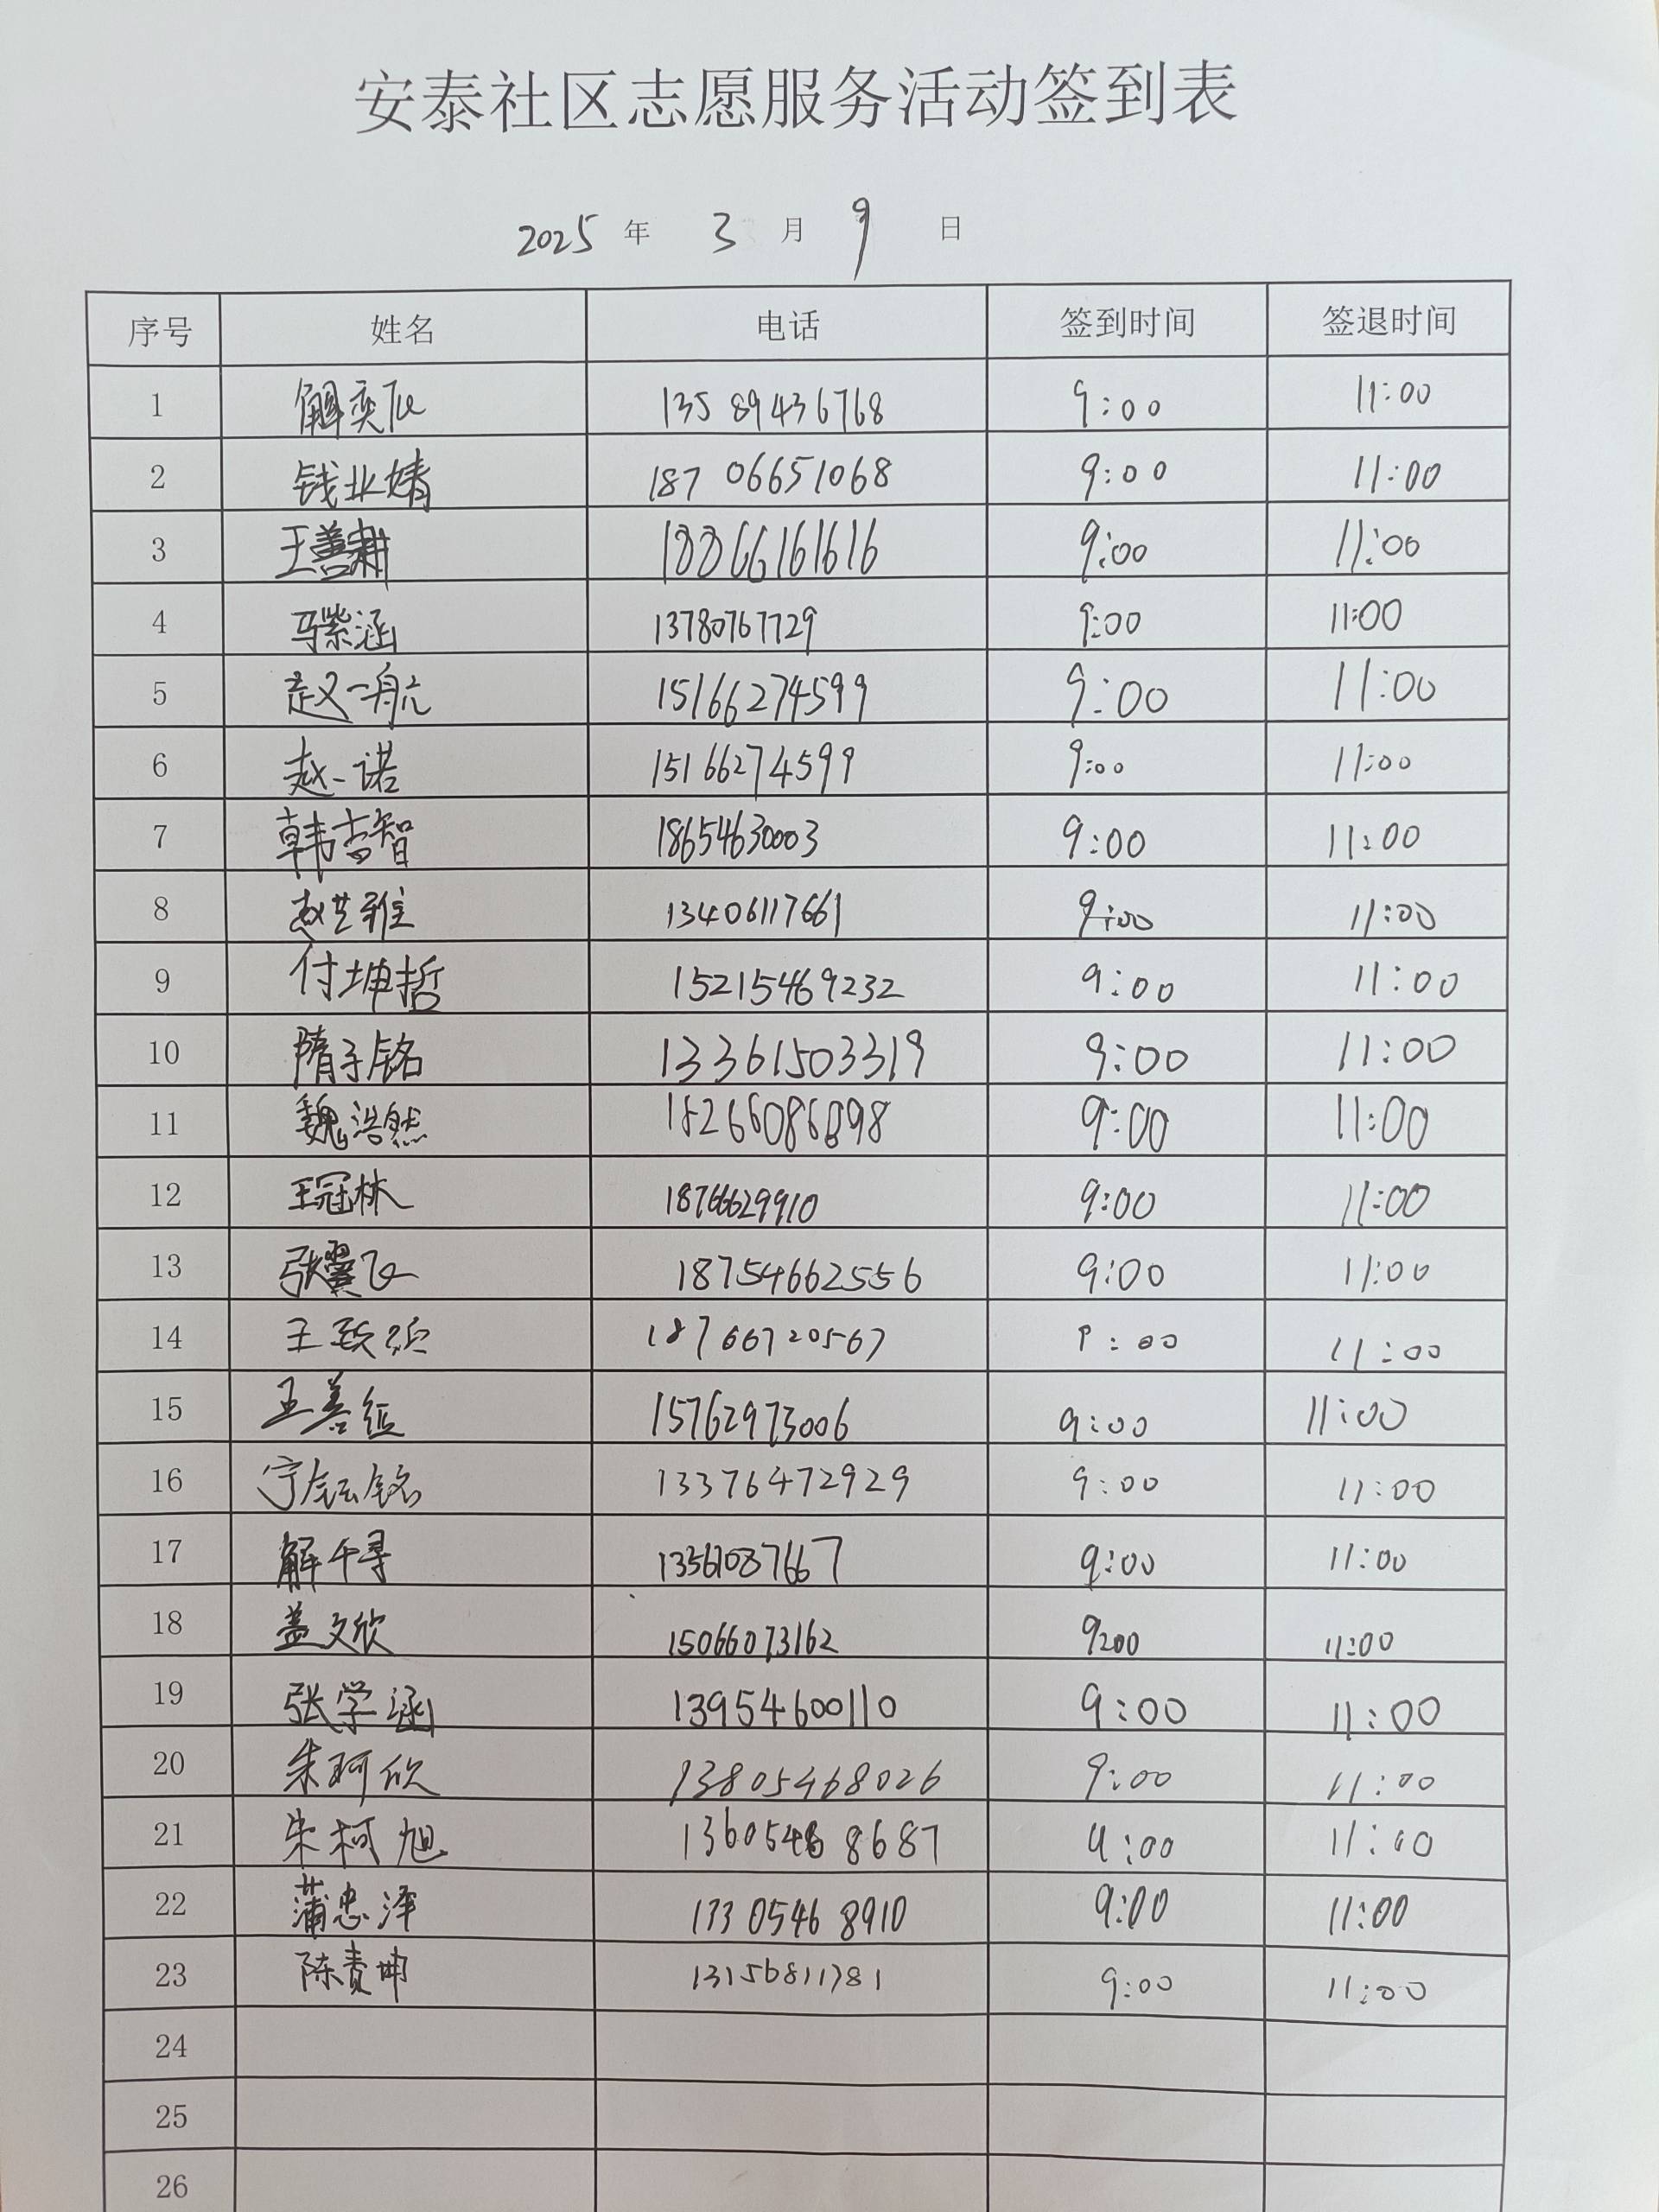 安泰社区志愿服务活动签到表
2025 年 3 月 9 日
序号 姓名 电话 签到时间 签退时间
1 解奕飞 13589436768 9:00 11:00
2 钱业婧 18706651068 9:00 11:00
3 王善 18866161616 9:00 11:00
4 马紫涵 13780767729 9:00 11:00
5 赵一航 15166274599 9:00 11:00
6 赵一诺 15166274599 9:00 11:00
7 韩吉智 18654630003 9:00 11:00
8 赵艺雅 13406117661 9:00 11:00
9 付坤哲 15215469232 9:00 11:00
10 隋子铭 13361503319 9:00 11:00
11 魏浩然 18266086898 9:00 11:00
12 王冠林 18766629910 9:00 11:00
13 张翼飞 18754662556 9:00 11:00
14 王 18766720567 9:00 11:00
15 王善 15762973006 9:00 11:00
16 宁铭 13376472929 9:00 11:00
17 解千寻 13561087667 9:00 11:00
18 盖文欣 15066073162 9:00 11:00
19 张学涵 13954600110 9:00 11:00
20 朱珂欣 13805468026 9:00 11:00
21 宋柯旭 13605468687 9:00 11:00
22 蒲忠泽 13305468910 9:00 11:00
23 陈贵坤 13156811781 9:00 11:00
24
25
26